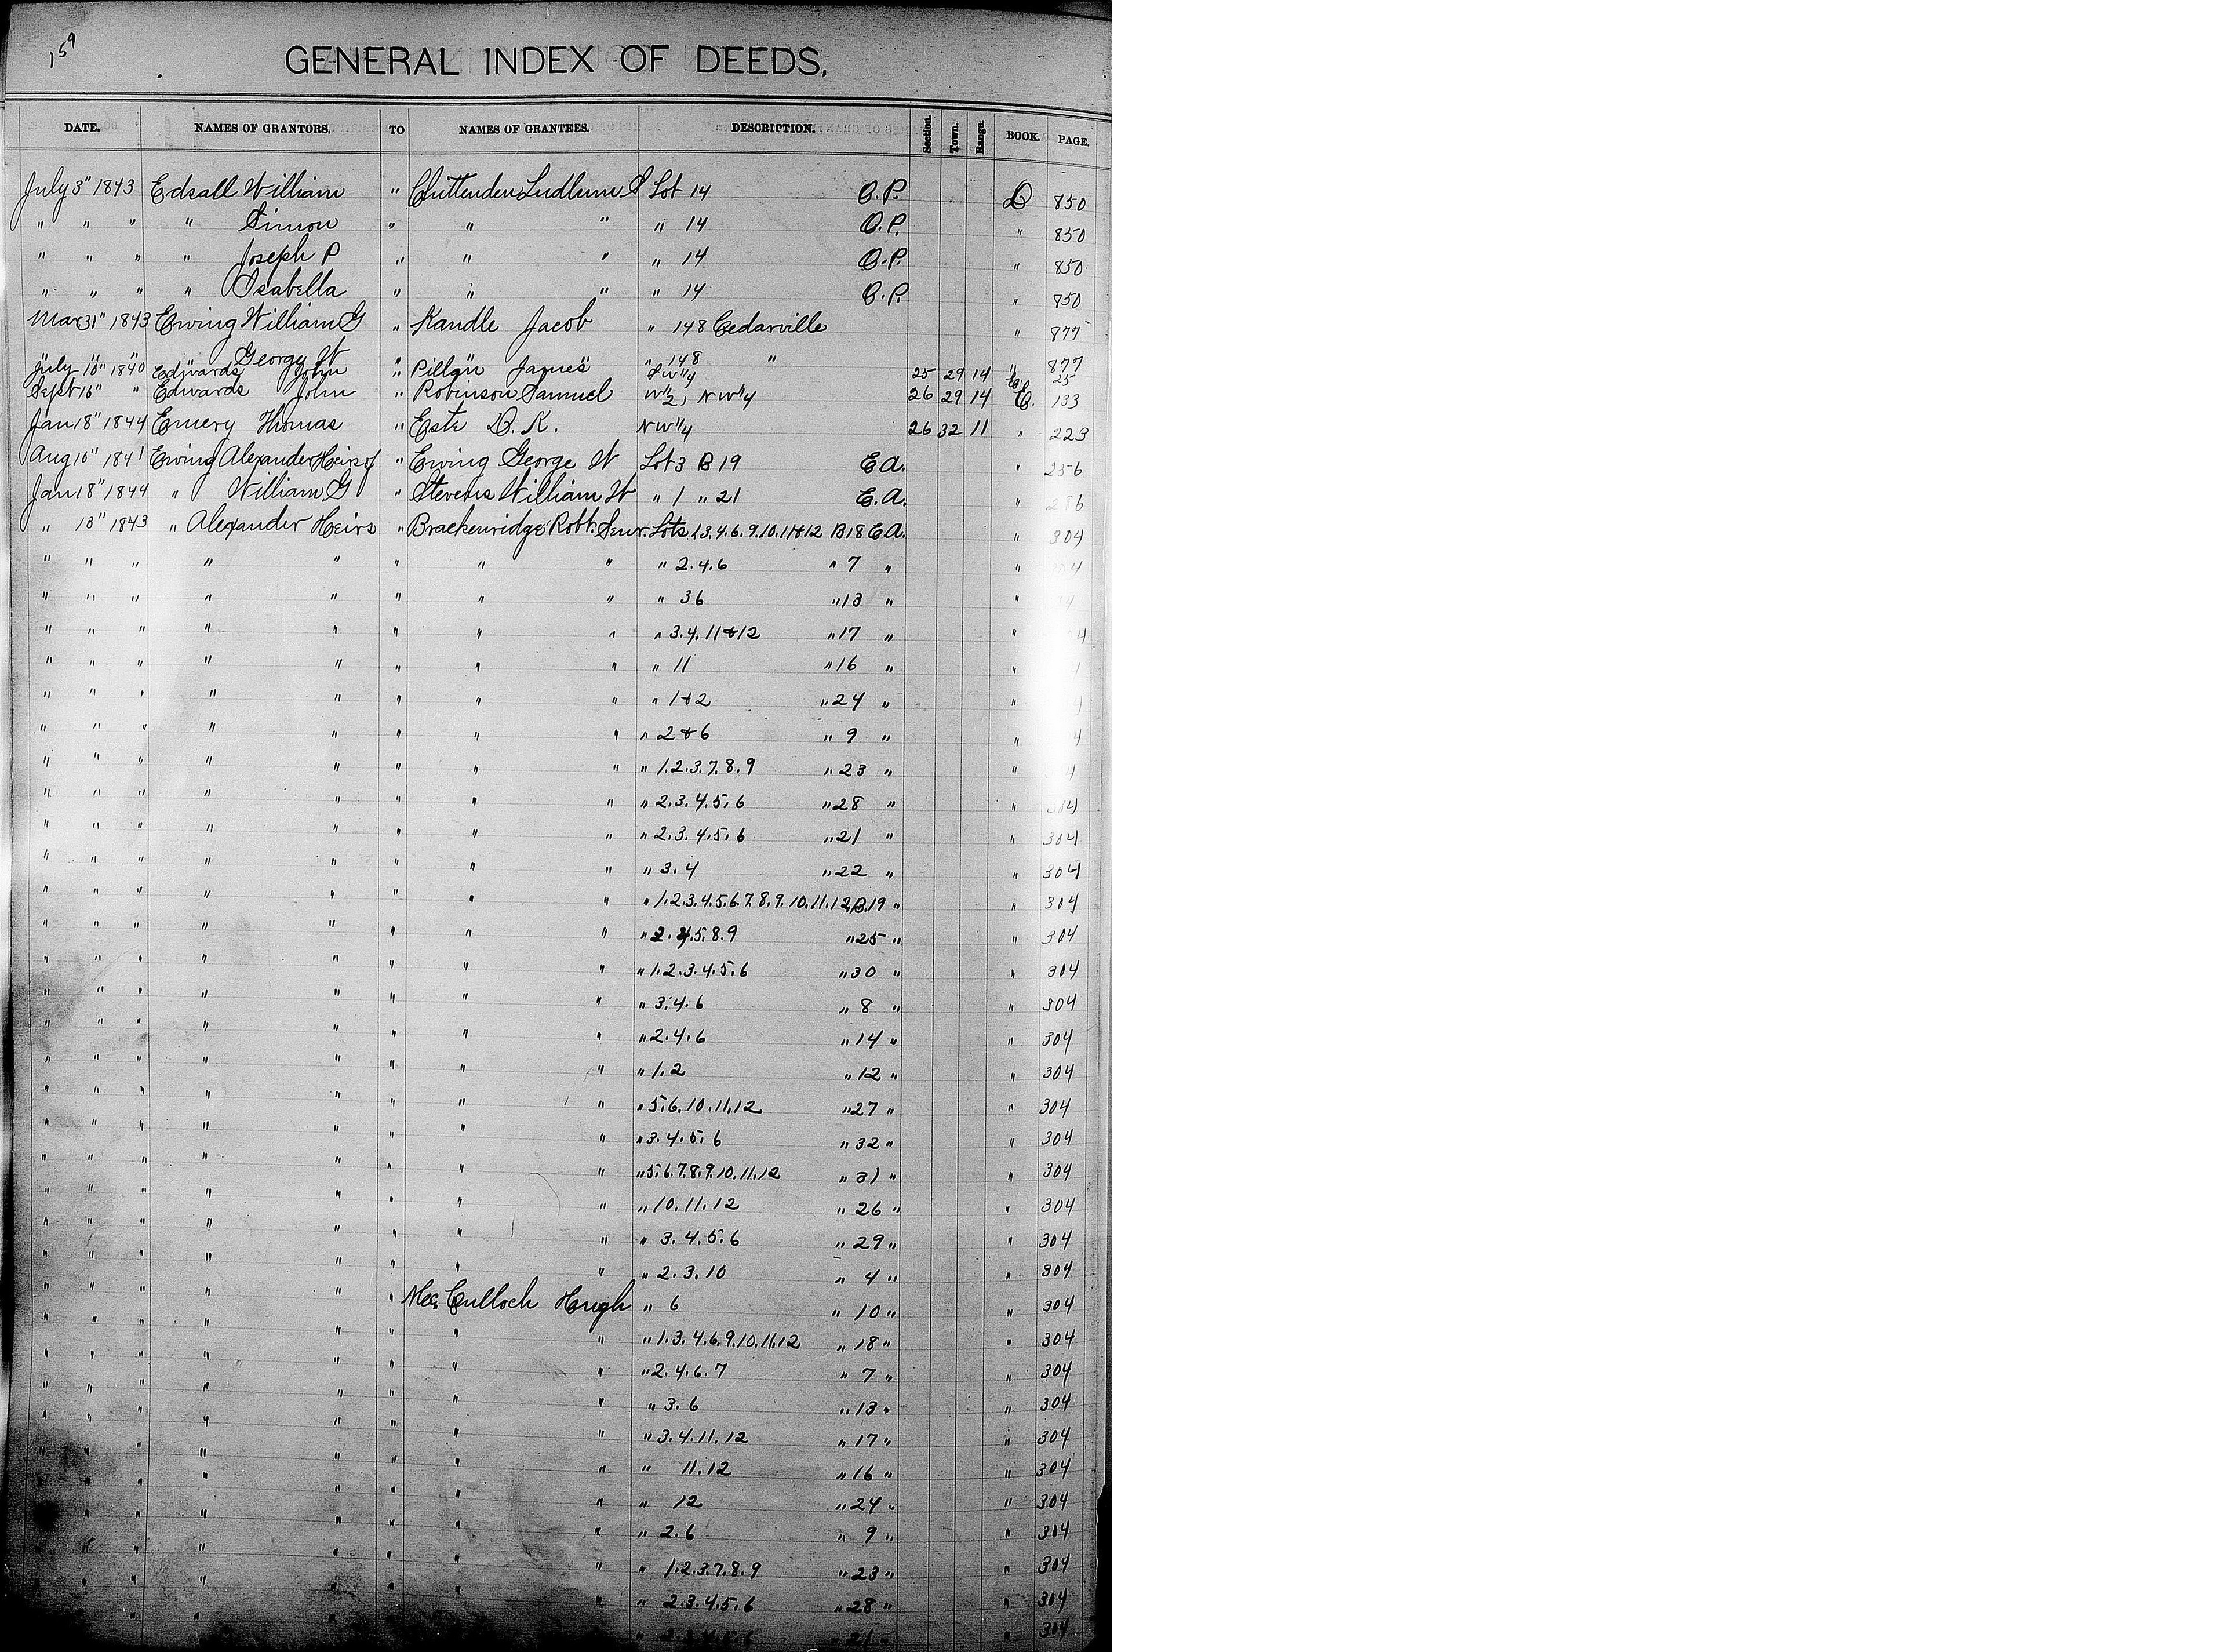 159
GENERAL INDEX OF DEEDS.
DATE. NAMES OF GRANTORS. TO NAMES OF GRANTEES. DESCRIPTION. Section. Town. Range. BOOK. PAGE.
July 3" 1843 Edsall William " Chittenden Ludlum S Lot 14 O.P. D 850
" " " " Simon " " " " 14 O.P. " 850
" " " " Joseph P " " " " 14 O.P. " 850
" " " " Isabella " " " " 14 O.P. " 850
Mar 31" 1843 Ewing William G " Kandle Jacob " 148 Cedarville " 877
" " " " George W " " " " 148 " " 877
July 18" 1840 Edwards John " Pillan James SW 1/4 25 29 14 E. 25
Sept 16" " Edwards John " Robinson Samuel W 1/2, NW 1/4 26 29 14 E. 133
Jan 18" 1844 Emery Thomas " Este D. K. NW 1/4 26 32 11 " 223
Aug 10" 1841 Ewing Alexander Heirs of " Ewing George W Lot 3 B 19 E.A. " 256
Jan 18" 1844 " William G " Stevens William W " 1 " 21 E.A. " 286
" 13" 1843 " Alexander Heirs " Brackenridge Robt. Senr. Lots 1.3.4.6.9.10.11&12 B 18 E.A. " 304
" " " " " " " " " 2.4.6 " 7 " "
" " " " " " " " " 36 " 13 " "
" " " " " " " " " 3.4.11&12 " 17 " "
" " " " " " " " " 11 " 16 " "
" " " " " " " " " 1&2 " 24 " "
" " " " " " " " " 2&6 " 9 " "
" " " " " " " " " 1.2.3.7.8.9 " 23 " "
" " " " " " " " " 2.3.4.5.6 " 28 " " 304
" " " " " " " " " 2.3.4.5.6 " 21 " " 304
" " " " " " " " " 3.4 " 22 " " 304
" " " " " " " " " 1.2.3.4.5.6.7.8.9.10.11.12 B.19 " " 304
" " " " " " " " " 2.4.5.8.9 " 25 " " 304
" " " " " " " " " 1.2.3.4.5.6 " 30 " " 304
" " " " " " " " " 3.4.6 " 8 " " 304
" " " " " " " " " 2.4.6 " 14 " " 304
" " " " " " " " " 1.2 " 12 " " 304
" " " " " " " " " 5.6.10.11.12 " 27 " " 304
" " " " " " " " " 3.4.5.6 " 32 " " 304
" " " " " " " " " 5.6.7.8.9.10.11.12 " 31 " " 304
" " " " " " " " " 10.11.12 " 26 " " 304
" " " " " " " " " 3.4.5.6 " 29 " " 304
" " " " " " " " " 2.3.10 " 4 " " 304
" " " " " " Mc.Culloch Hugh " 6 " 10 " " 304
" " " " " " " " " 1.3.4.6.9.10.11.12 " 18 " " 304
" " " " " " " " " 2.4.6.7 " 7 " " 304
" " " " " " " " " 3.6 " 13 " " 304
" " " " " " " " " 3.4.11.12 " 17 " " 304
" " " " " " " " " 11.12 " 16 " " 304
" " " " " " " " " 12 " 24 " " 304
" " " " " " " " " 2.6 " 9 " " 304
" " " " " " " " " 1.2.3.7.8.9 " 23 " " 304
" " " " " " " " " 2.3.4.5.6 " 28 " " 304
" 2.3.4.5.6 " 21 " " 304